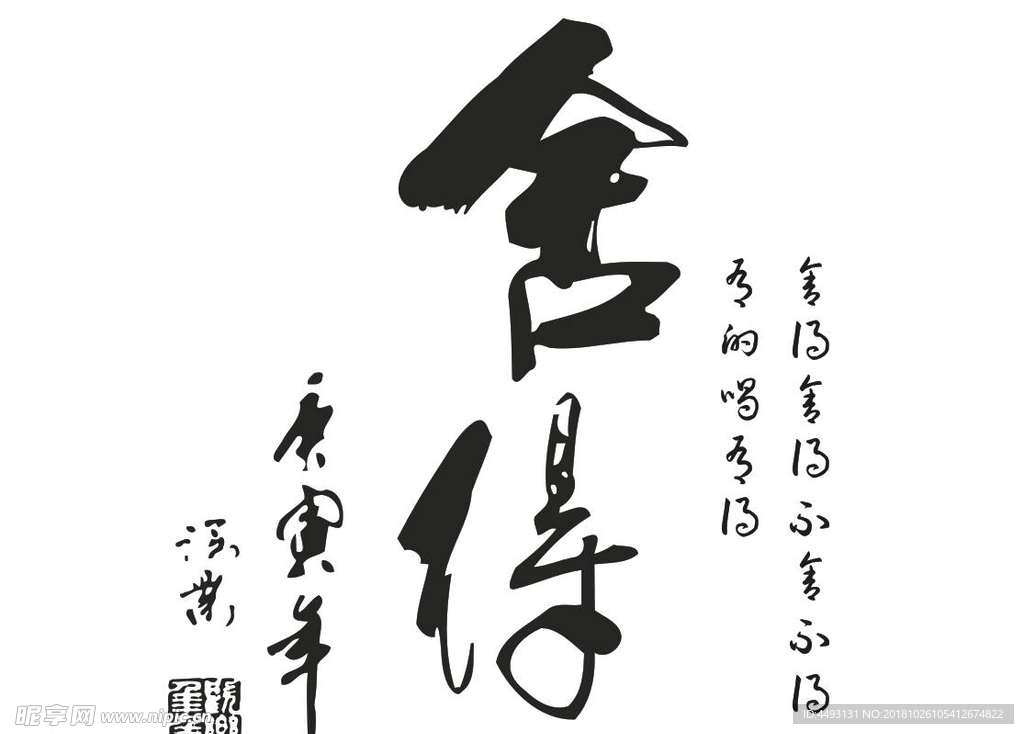 舍得
舍得舍得不舍不得
有的喝有得
庚寅年
昵享网 www.nipic.cn
ID:4493131 NO:20181026105412674822